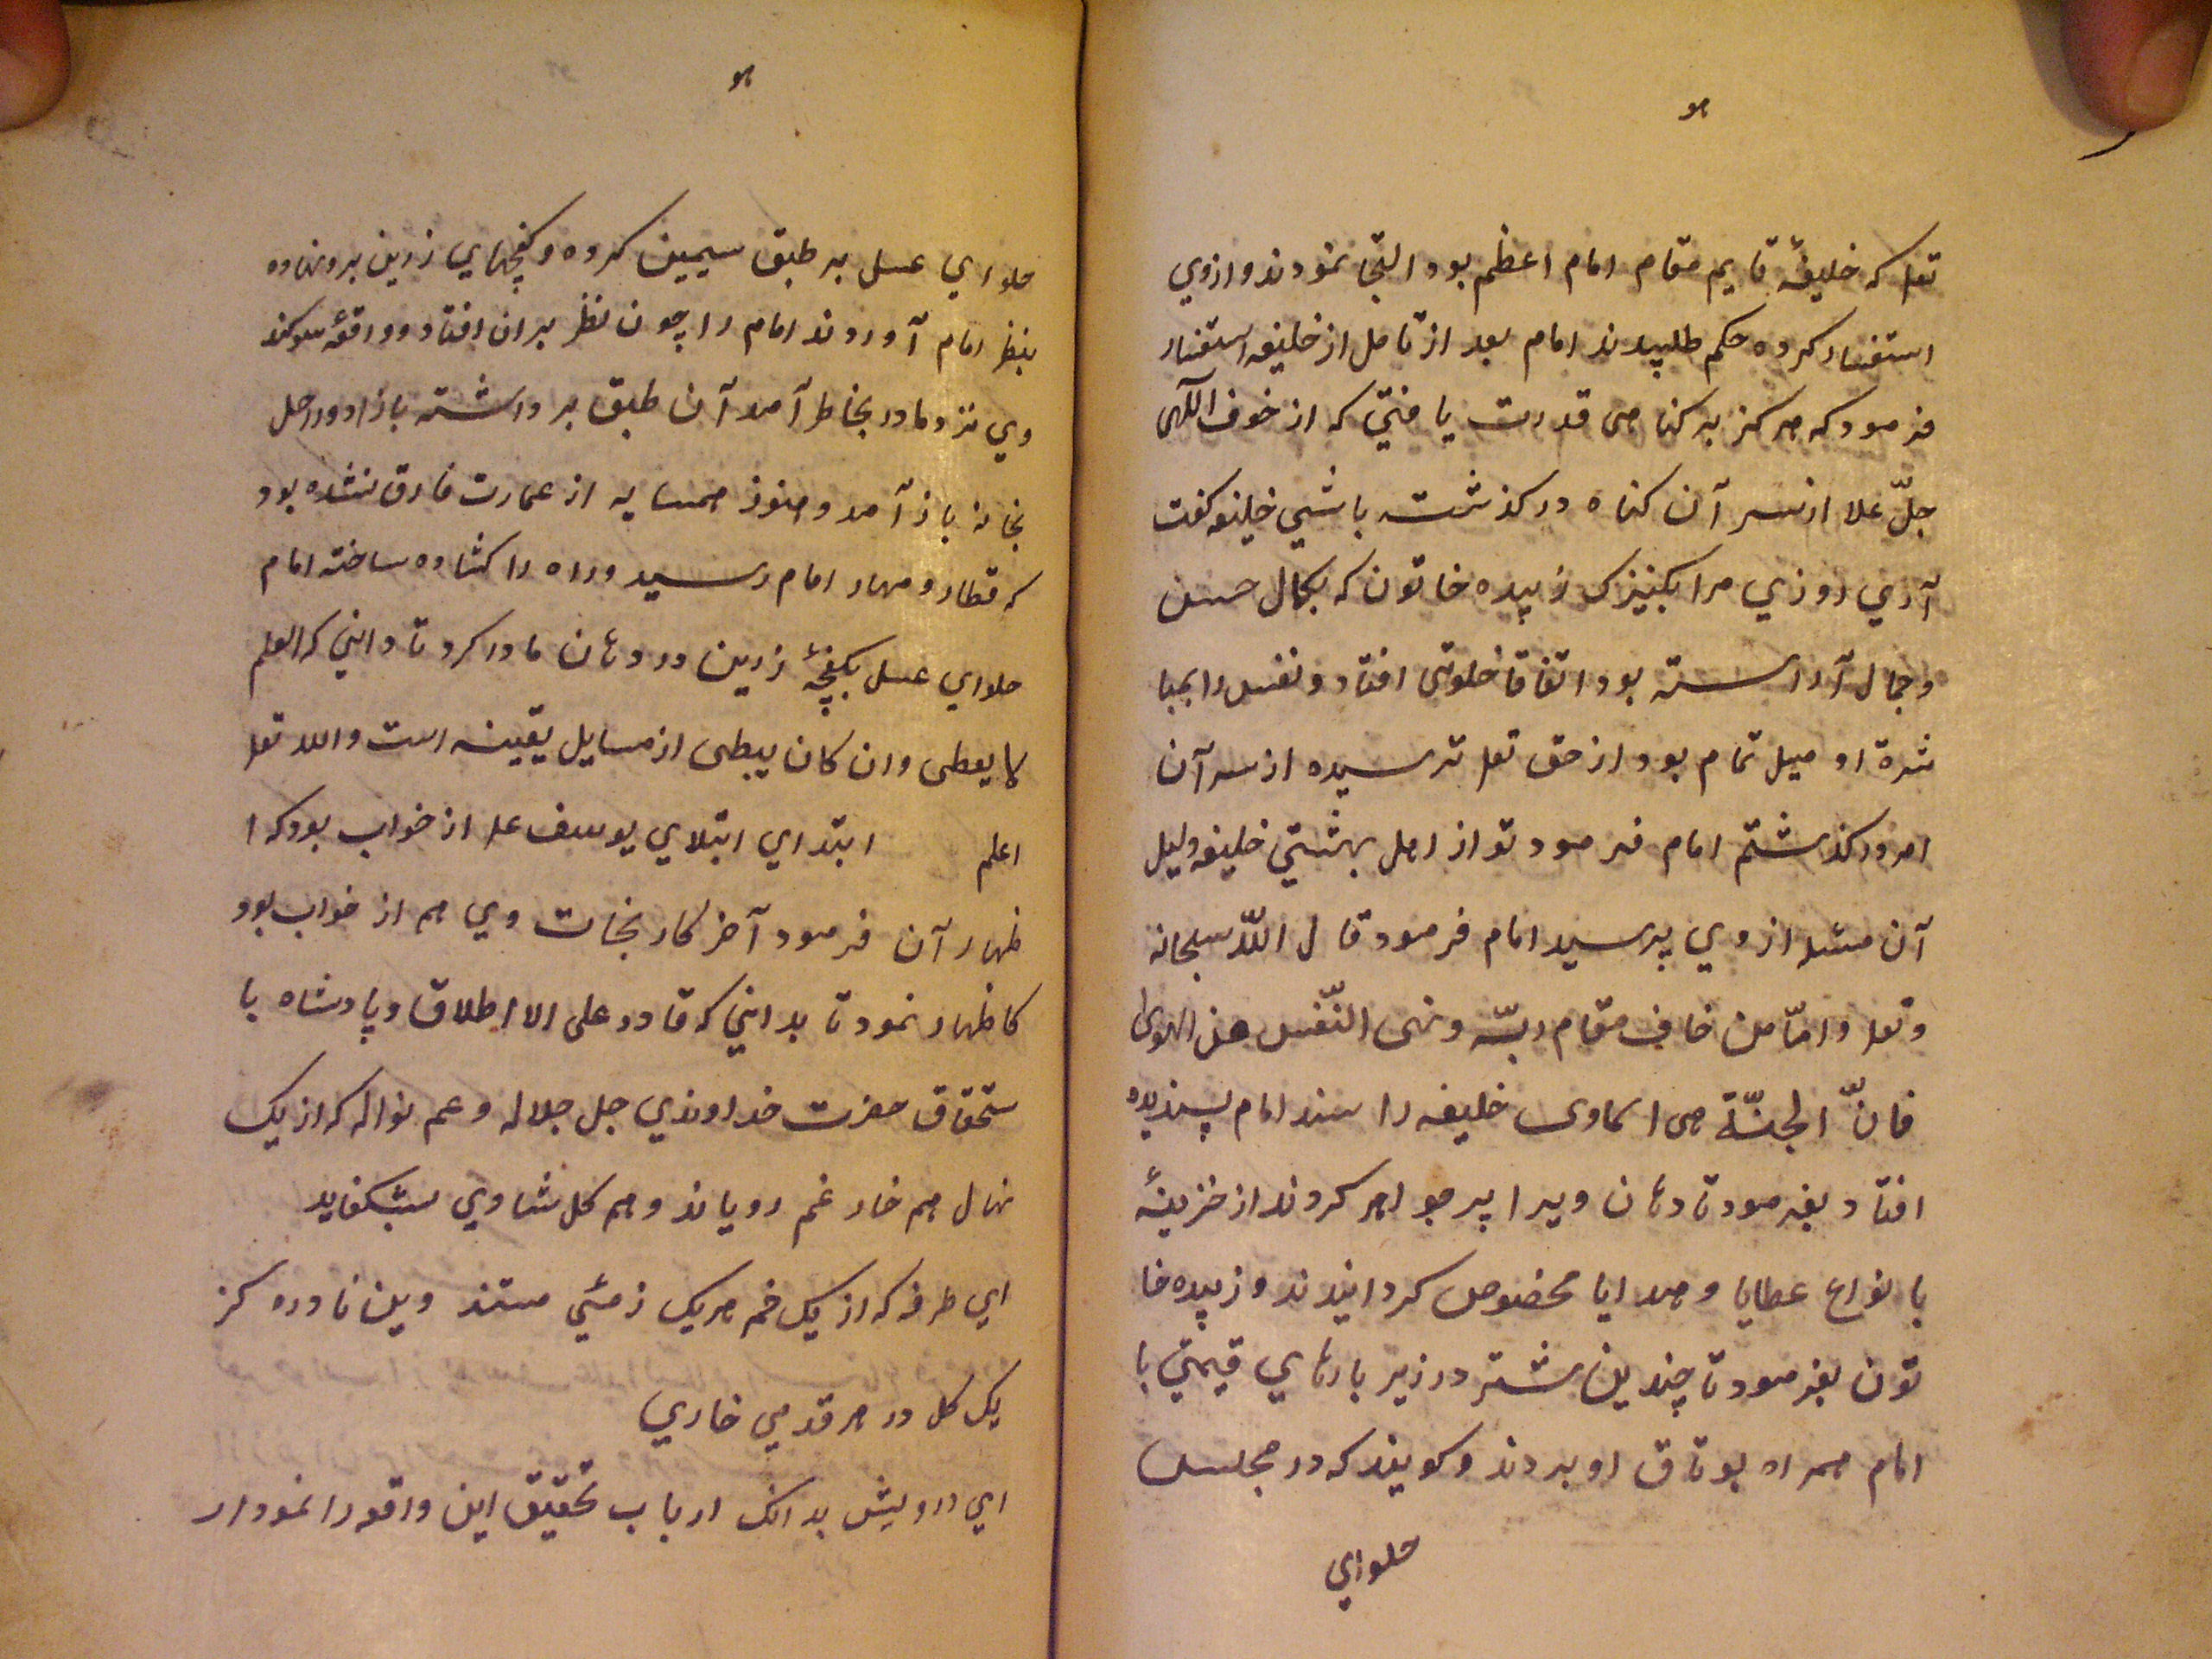 هو
تعا که خلیفهٔ قایم مقام امام اعظم بود التجا نمودند و ازوي
استفسار کرده حکم طلبیدند امام بعد از تامل از خلیفه استفسار
فرمود که هرکز بر کناهی قدرت یافتي که از خوف الٓهی
جلّ علا از سر آن کناه درکذشته باشي خلیفه کفت
آري روزي مرا بکنیزک زبیده خاتون که بکمال حسن
و جمال آراسته بود اتفاقا خلوتی افتاد و نفس را بمبا
شرة او میل تمام بود از حق تعا ترسیده از سر آن
امر درکذشتم امام فرمود تو از اهل بهشتي خلیفه دلیل
آن مسله از وي پرسید امام فرمود قال اللّه سبحانه
و تعا و امّا من خاف مقام ربّه و نهی النّفس عن الهوی
فانّ الجنّة هی الماوی خلیفه را سند امام پسندیده
افتاد بفرمود تا دهان ویرا پر جواهر کردند از خزینهٔ
با نواع عطایا و هدایا مخصوص کردانیدند و زبیده خا
تون بفرمود تا چندین شتر در زیر بارهاي قیمتي با
امام همراه بوتاق او بردند و کویند که در مجلس
حلواي
هو
حلواي عسل بر طبق سیمین کرده و کفچهاي زرین برو نهاده
بنظر امام آوردند امام را چون نظر بران افتاد و واقعهٔ سوکند
وي نزد مادر بخاطر آمد آن طبق برداشته بازاد و راحل
بخانه باز آمد و هنوز همسایه از عمارت فارق نشده بود
که قطار و مهار امام رسید و راه را کشاده ساخته امام
حلواي عسل بکفچهٔ زرین در دهان مادر کرد تا داني که العلم
کا یعطی و ان کان یبطی از مسایل یقینه است و الله تعا
اعلم ابتداي ابتلاي یوسف علا از خواب بود که ا
ظهار آن فرمود آخر کار نجات وي هم از خواب بود
کاظهار نمود تا بداني که قادر علی الا اطلاق و پادشاه با
ستحقاق حضرت خداوندي جل جلاله و عم نواله که از یک
نهال هم خار غم رویاند و هم کل شادي بشکفاید
اي طرفه که از یک خم هر یک ز مئي مستند وین نادره کز
یک کل در هر قدمي خاري
اي درویش بدانک ارباب تحقیق این واقعه را نمودار